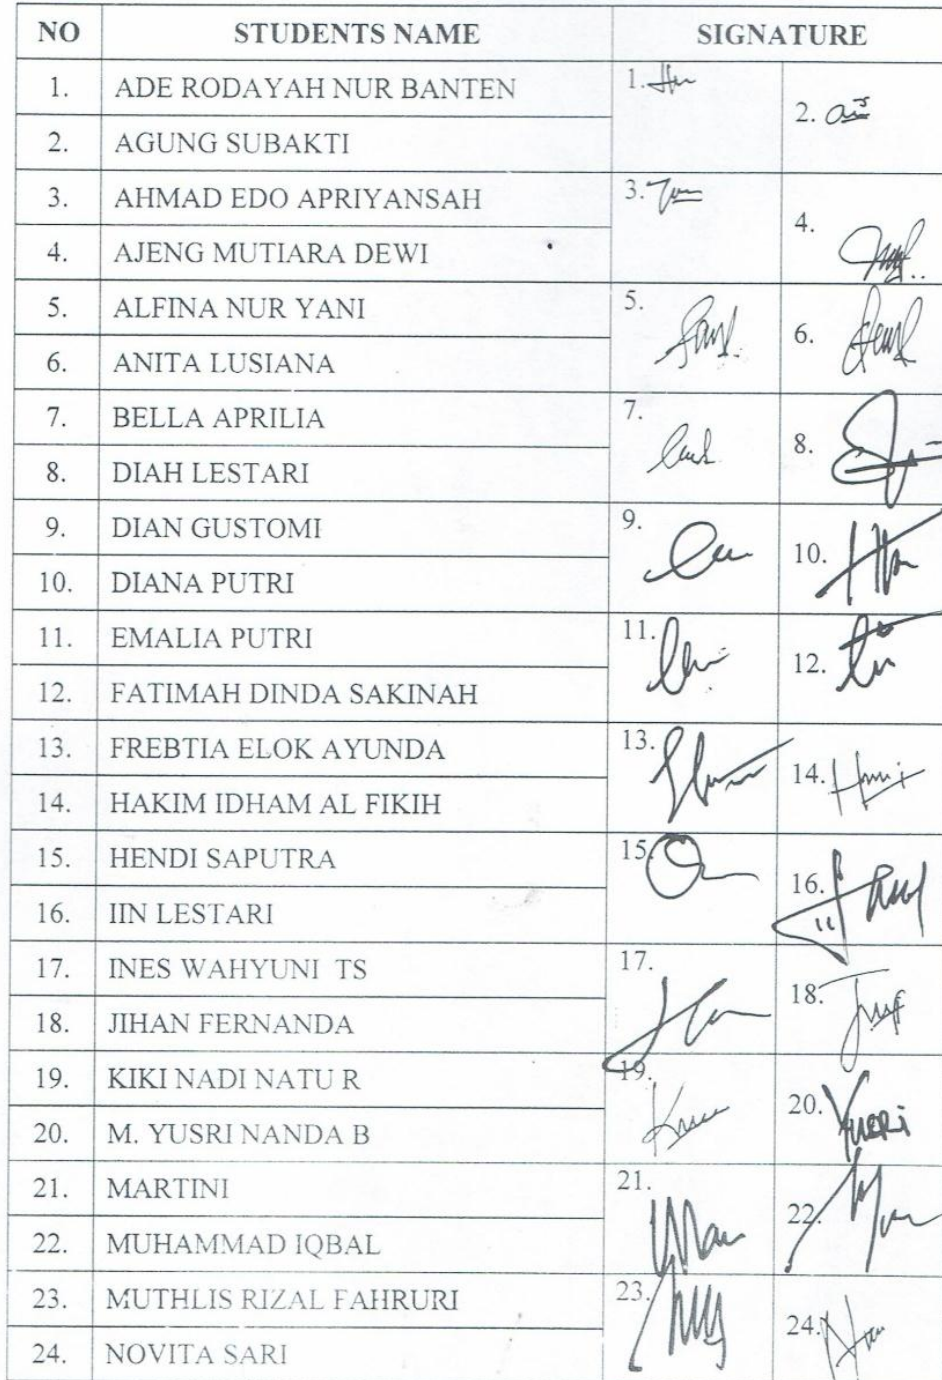 NO STUDENTS NAME SIGNATURE
1. ADE RODAYAH NUR BANTEN 1.
2. AGUNG SUBAKTI 2.
3. AHMAD EDO APRIYANSAH 3.
4. AJENG MUTIARA DEWI 4.
5. ALFINA NUR YANI 5.
6. ANITA LUSIANA 6.
7. BELLA APRILIA 7.
8. DIAH LESTARI 8.
9. DIAN GUSTOMI 9.
10. DIANA PUTRI 10.
11. EMALIA PUTRI 11.
12. FATIMAH DINDA SAKINAH 12.
13. FREBTIA ELOK AYUNDA 13.
14. HAKIM IDHAM AL FIKIH 14.
15. HENDI SAPUTRA 15.
16. IIN LESTARI 16.
17. INES WAHYUNI TS 17.
18. JIHAN FERNANDA 18.
19. KIKI NADI NATU R 19.
20. M. YUSRI NANDA B 20. YUSRi
21. MARTINI 21.
22. MUHAMMAD IQBAL 22.
23. MUTHLIS RIZAL FAHRURI 23.
24. NOVITA SARI 24.